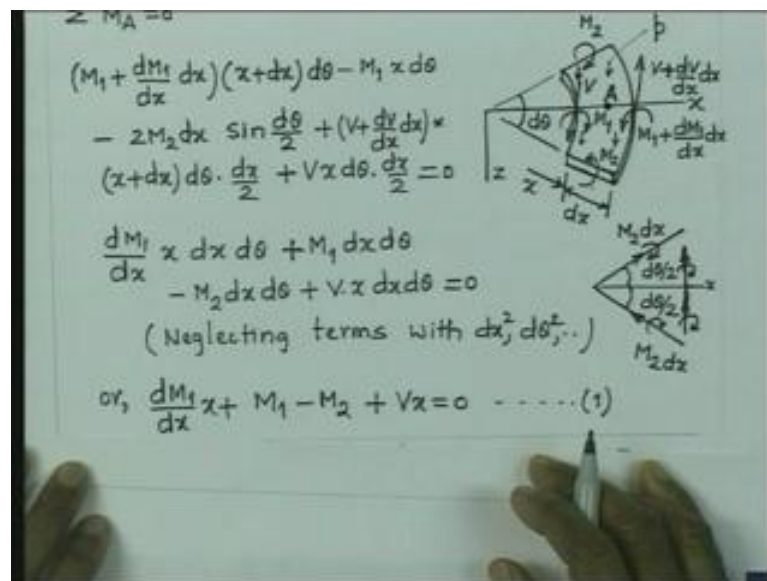 Σ M_A = 0
(M₁ + dM₁/dx dx)(x+dx) dθ - M₁ x dθ
- 2M₂dx Sin dθ/2 + (V + dV/dx dx)×
(x+dx) dθ · dx/2 + Vx dθ · dx/2 = 0
dM₁/dx x dx dθ + M₁ dx dθ
- M₂ dx dθ + V·x dx dθ = 0
(Neglecting terms with dx², dθ², ..)
or, dM₁/dx x + M₁ - M₂ + Vx = 0 ----- (1)
M₂
p
V
A
V + dV/dx dx
x
dθ
M₁
M₁ + dM₁/dx dx
M₂
z
x
dx
M₂dx
dθ/2
x
dθ/2
M₂dx